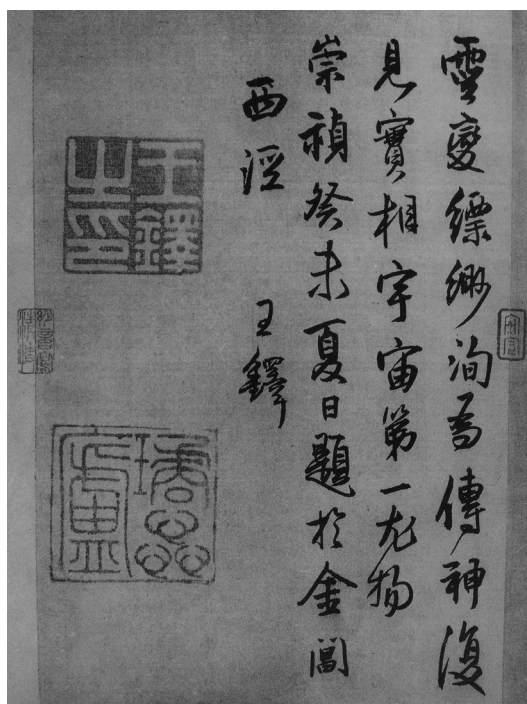 靈變縹緲洵爲傳神復
見實相宇宙第一尤物
崇禎癸未夏日題於金閶
西涇 王鐸
王鐸之印
瓊蕊廬